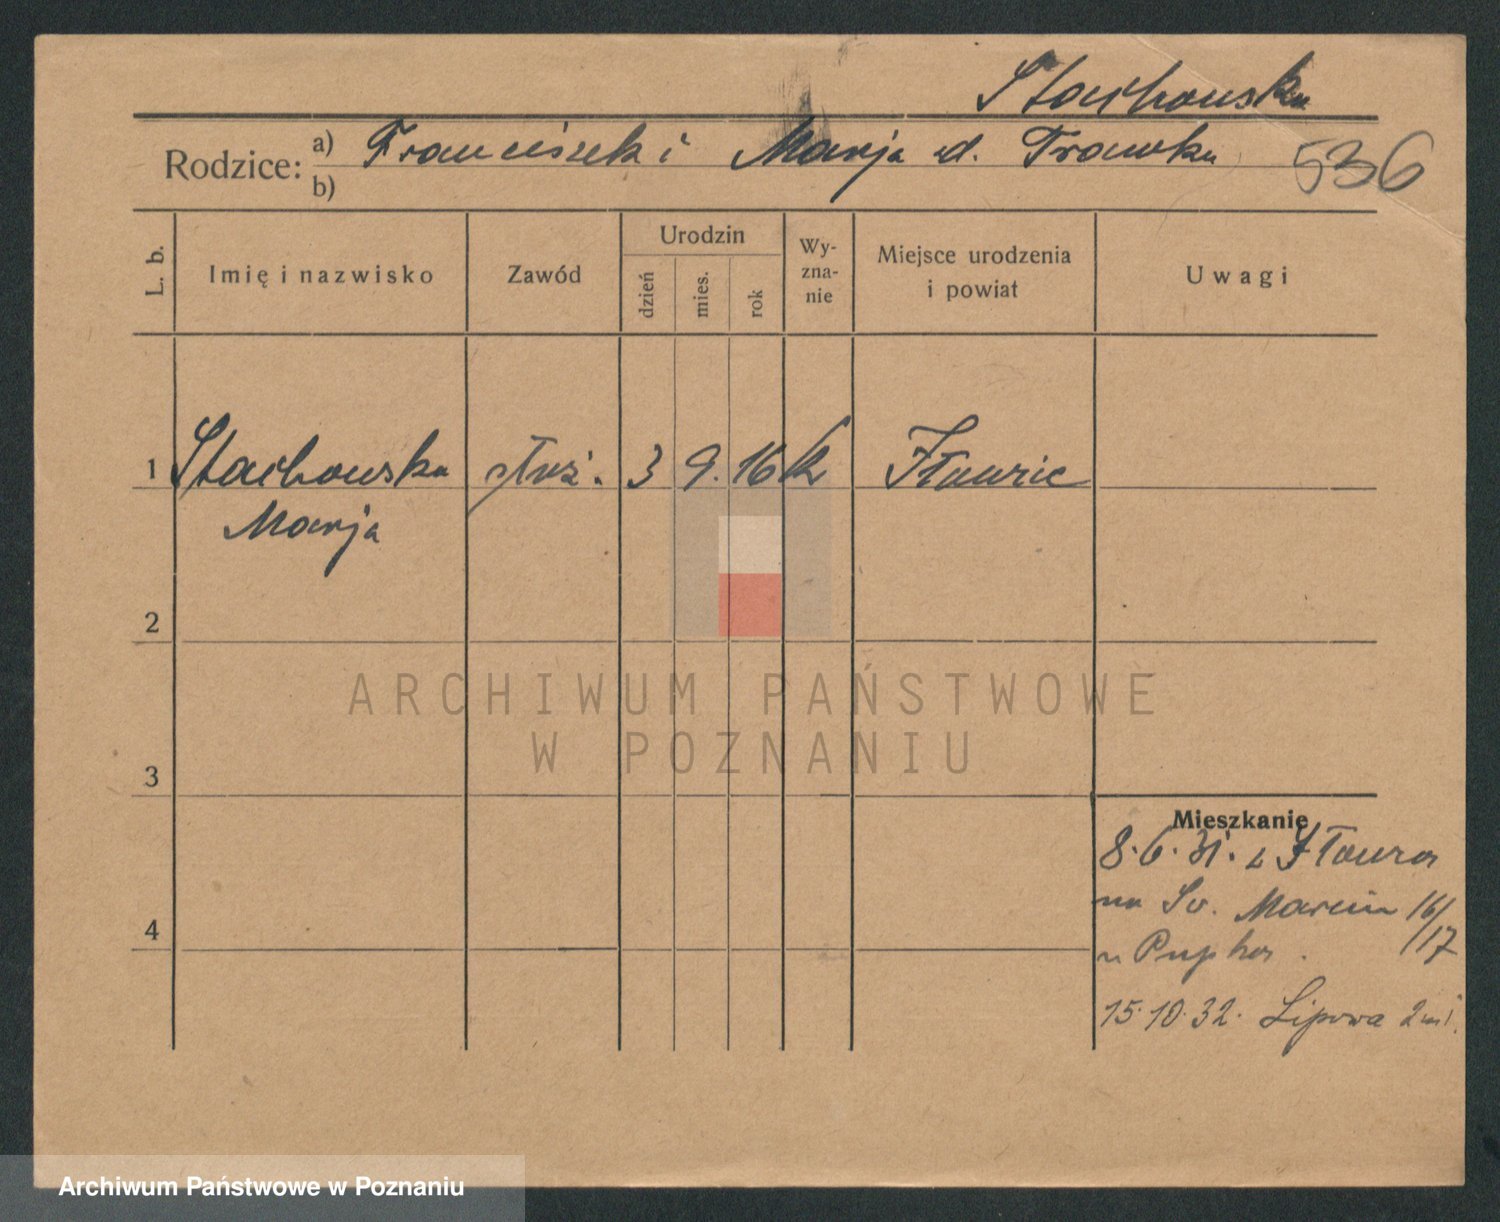 Stachowska
Rodzice: a) Franciszek i Marja d. Trawka 536
b)
L. b. Imię i nazwisko Zawód Urodzin dzień mies. rok Wy-zna-nie Miejsce urodzenia i powiat Uwagi
1 Stachowska służ. 3 9. 16 k Iłowiec
Marja
2
ARCHIWUM PAŃSTWOWE
W POZNANIU
3
Mieszkanie
8.6.31. z
na Św. Marcin 16/17
4
u
15.10.32. Lipowa
Archiwum Państwowe w Poznaniu